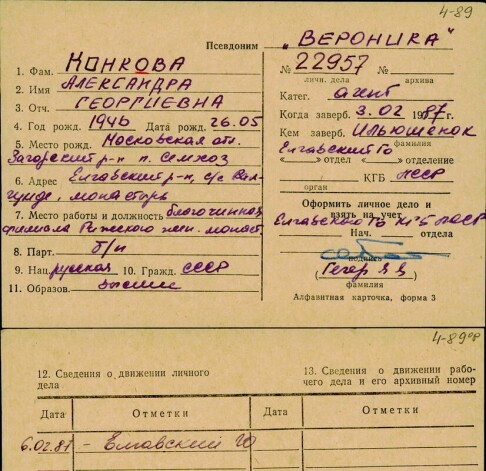 4-89
Псевдоним „ВЕРОНИКА"
1. Фам. КОНКОВА
2. Имя АЛЕКСАНДРА
3. Отч. ГЕОРГИЕВНА
4. Год рожд. 1946 Дата рожд. 26.05
5. Место рожд. Московская обл.
Загорский р-н п. Семхоз
6. Адрес Елгавский р-н, с/с Вал-
гунде, монастырь
7. Место работы и должность благочинная
филиала Рижского жен. монаст.
8. Парт. б/п
9. Нац. русская 10. Гражд. СССР
11. Образов. высшее
№ 22957 №
личн. дела архива
Катег. агент
Когда заверб. 3.02 1987 г.
Кем заверб. Ильюшенок
фамилия
Елгавский ГО
«     » отдел «     » отделение
КГБ ЛССР
орган
Оформить личное дело и
взять на учет
Елгавского ГО КГБ ЛССР
Нач. отдела
подпись
( Гегер )
фамилия
Алфавитная карточка, форма 3
4-89 об
12. Сведения о движении личного
дела
13. Сведения о движении рабо-
чего дела и его архивный номер
Дата Отметки Дата Отметки
6.02.87 - Елгавский ГО